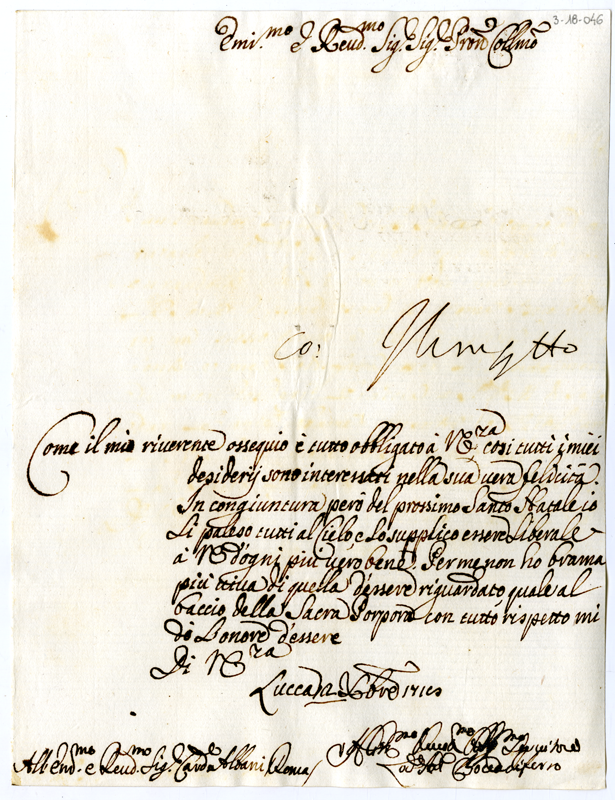 3-18-046
Emi.mo e Reud.mo Sig.r Sig.r Pron Collmo
Co:
Come il mio riverente ossequio è tutto obbligato à VEra così tutti i miei
desiderij sono interessati nella sua vera felicità.
In congiuntura però del prossimo Santo Natale io
li paleso tutti al Cielo, e lo supplico essere Liberale
à VE d'ogni più vero bene. Per me non ho brama
più viva di quella d'essere riguardato, quale al
baccio della Sacra Porpora con tutto rispetto mi
dò l'onore d'essere
Di VEra
Lucca Xbre
All'Em.mo e Reud.mo Sig. Card.le Albani Roma